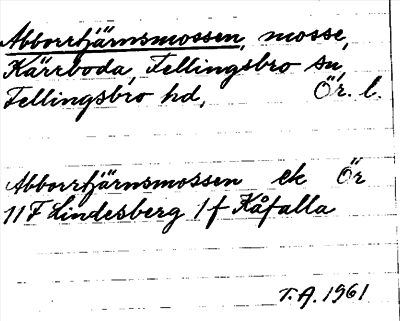 Abborrtjärnsmossen, mosse,
Kärrboda, Fellingsbro sn,
Fellingsbro hd, Ör. l.
Abborrtjärnsmossen ek Ör
11F Lindesberg 1f Kåfalla
T.A. 1961